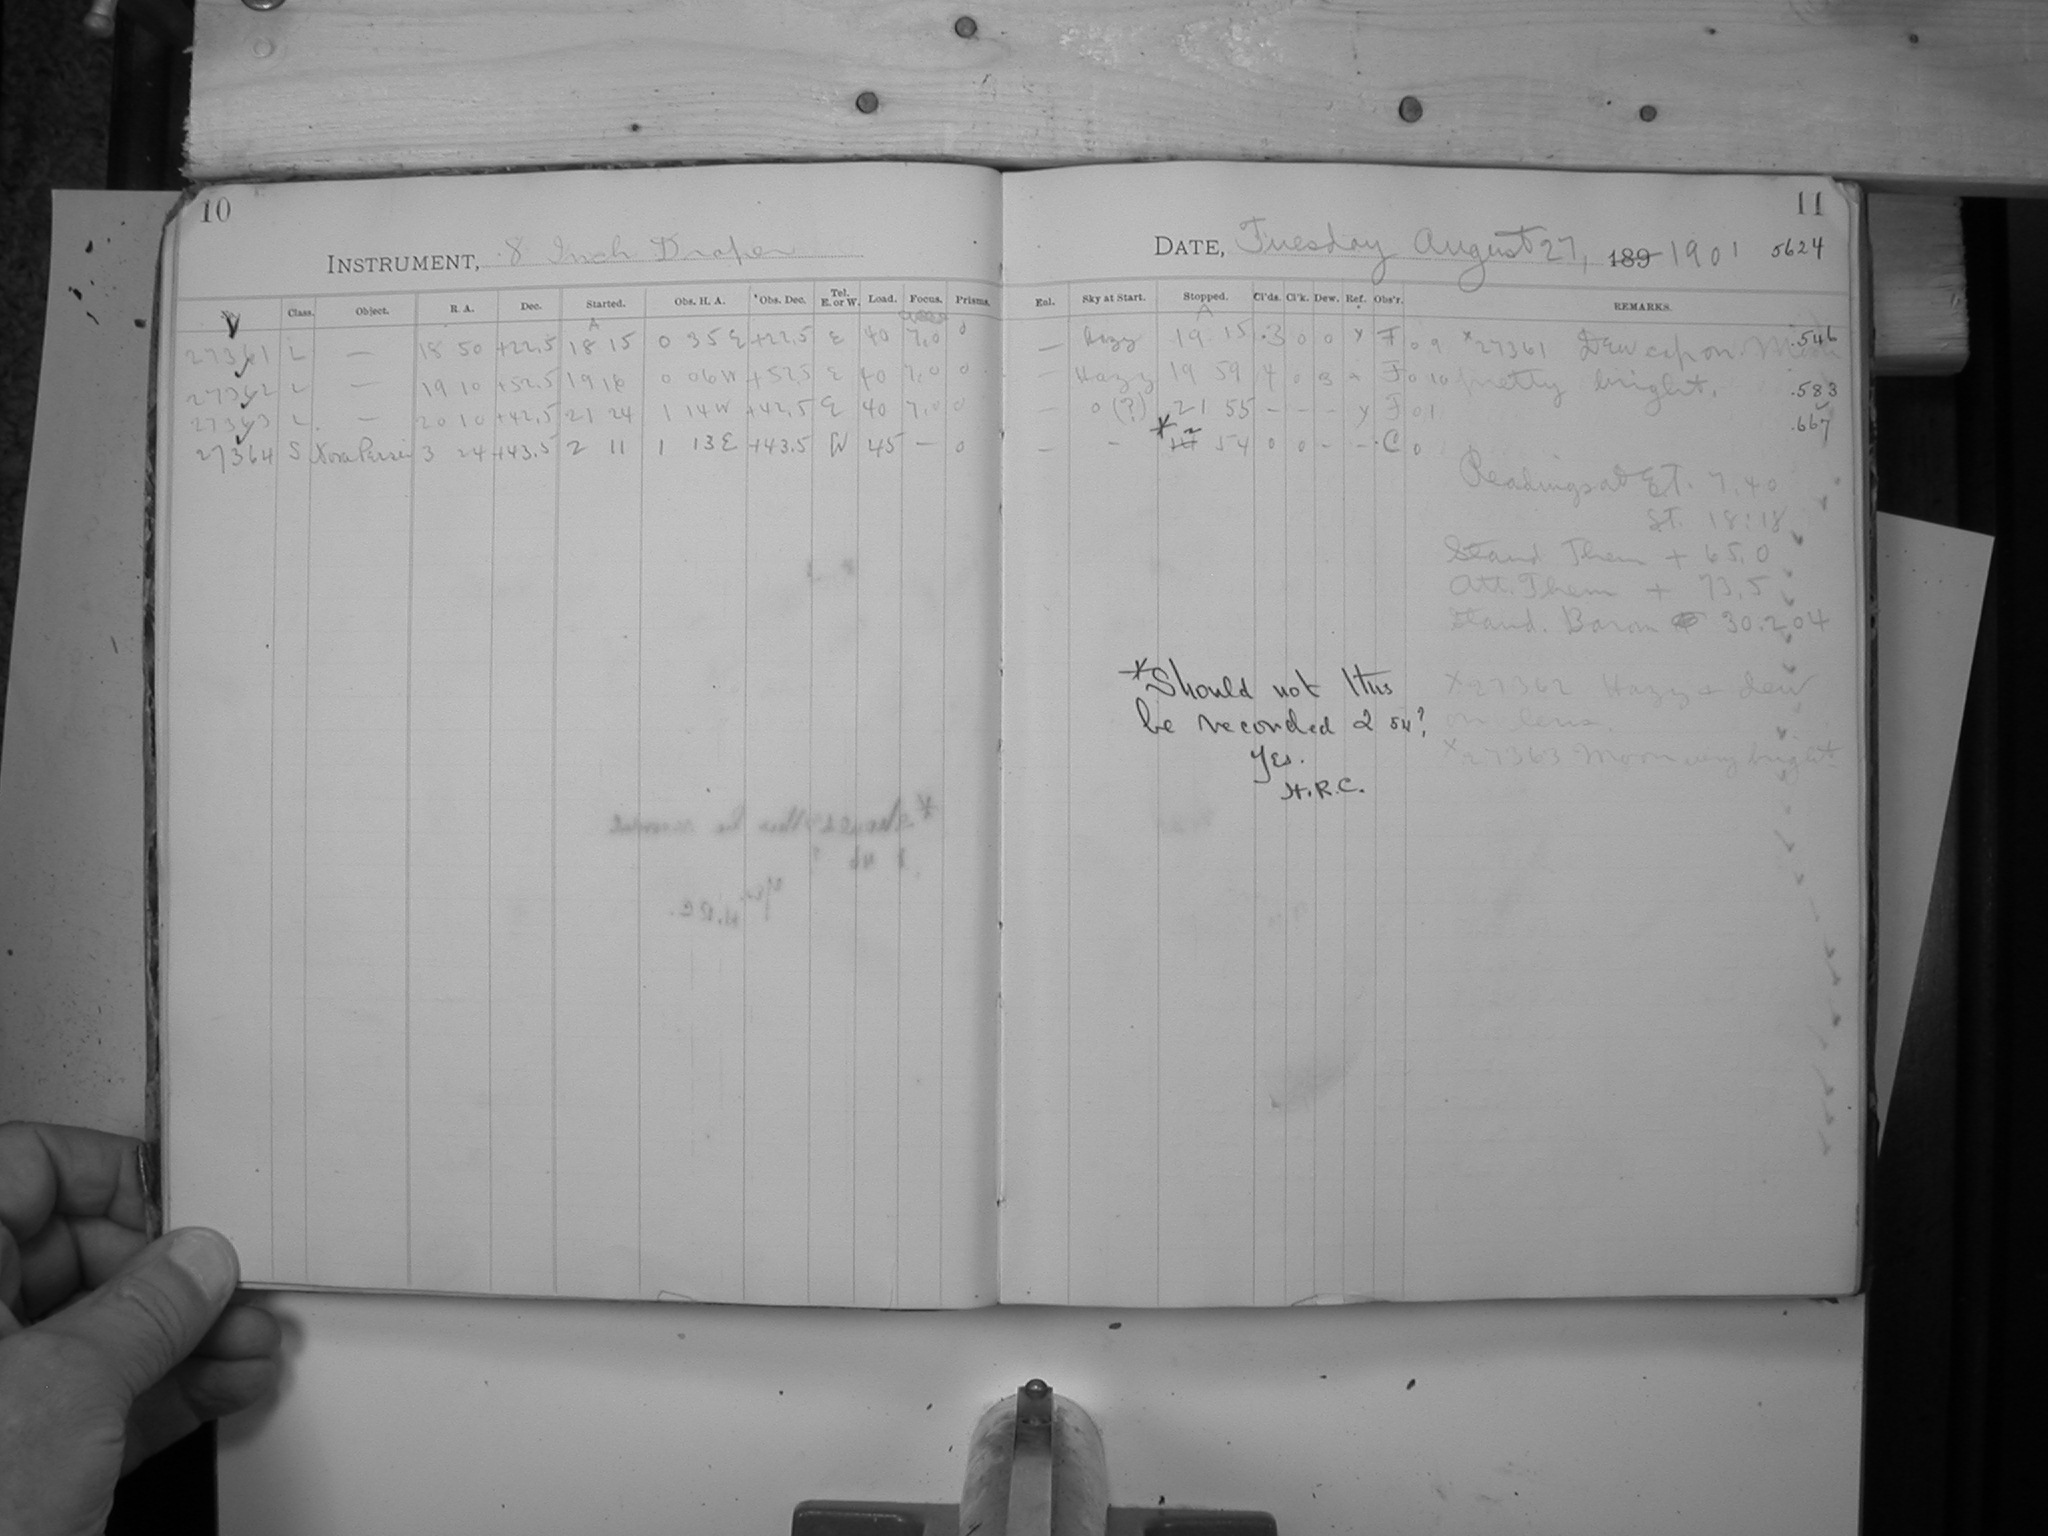 10
INSTRUMENT, 8 Inch Draper
No. Class. Object. R. A. Dec. Started. Obs. H. A. Obs. Dec. Tel. E. or W. Load. Focus. Prisms.
A
27361 L — 18 50 +22,5 18 15 0 35 E +22,5 E 40 7,0 0
27362 L — 19 10 +52,5 19 16 0 06 W +52,5 E 40 7,0 0
27363 L — 20 10 +42,5 21 24 1 14 W +42,5 E 40 7,0 0
27364 S Nova Persei 3 24 +43.5 2 11 1 13 E +43.5 W 45 — 0
11
DATE, Tuesday August 27, 189 1901 5624
Exl. Sky at Start. Stopped. Cl'ds. Cl'k. Dew. Ref. Obs'r. REMARKS.
A
— Hazy 19 15 .3 0 0 x F 0 9 *27361 Dew cap on. .546
— Hazy 19 59 4 0 3 x F 0 10 pretty bright. .583
— 0 (?) 21 55 - - - x F 0 1 .667
— - * 2 54 0 0 - - C 0
Readings at E.T. 7,40
S.T. 18:18
Stand Them + 65,0
Att. Them + 73,5
Stand. Barom 30.204
*Should not this
be recorded 2 54?
Yes.
H.R.C.
x27362 Hazy + dew
on lens.
x27363 Moon very bright